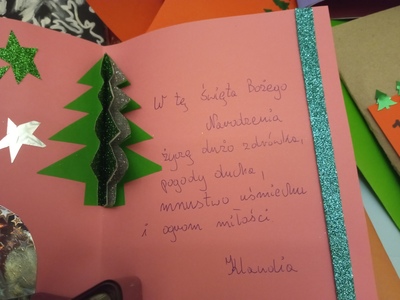 W tę święta Bożego
Narodzenia
życzę dużo zdrówka,
pogody ducha,
mnóstwo uśmiechu
i ogrom miłości
Klaudia